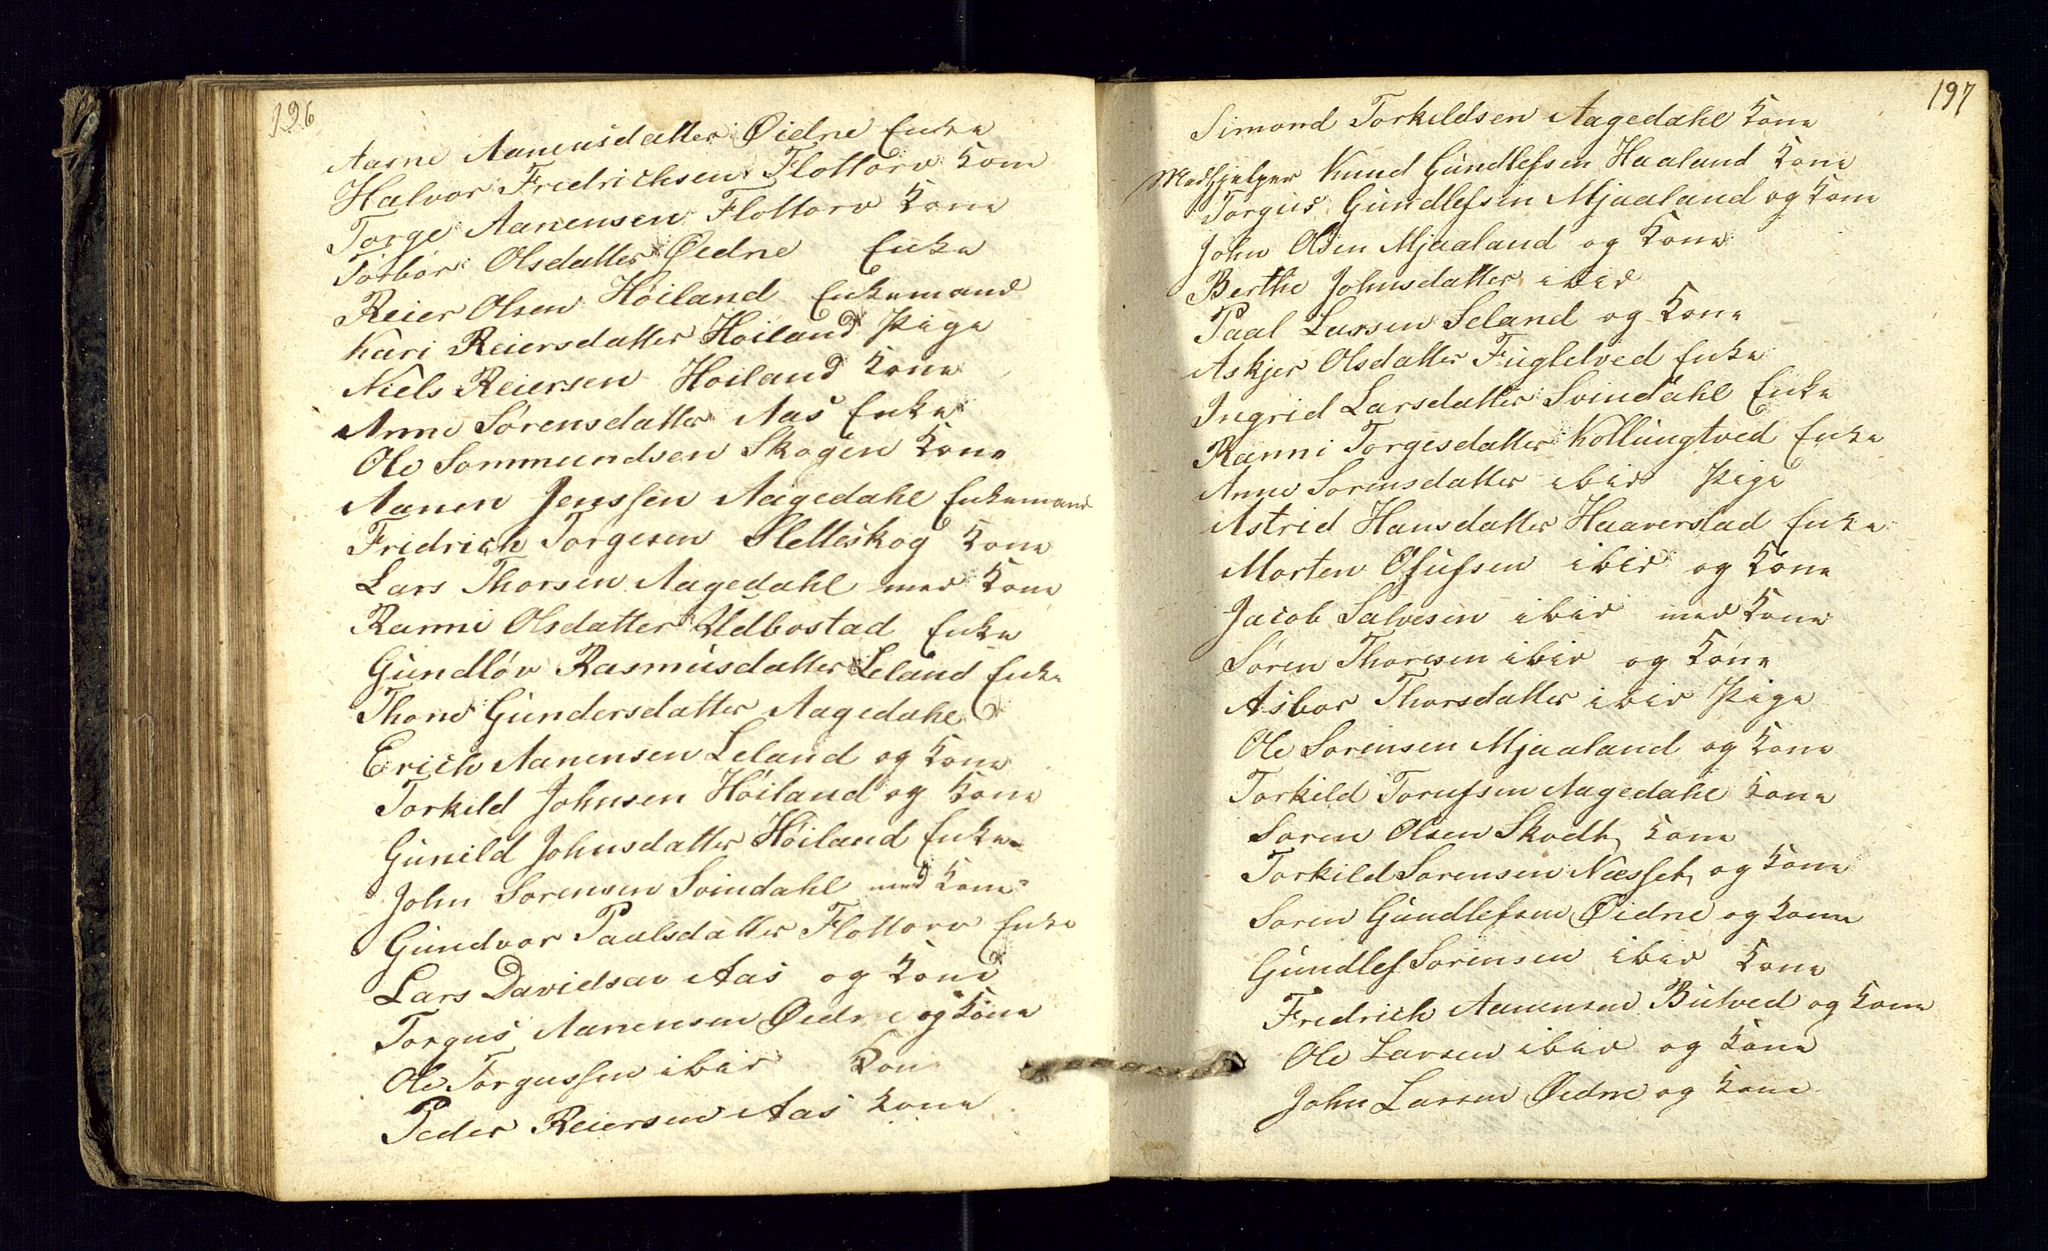 196
Aasne Aanensdatter Øidne Enke
Halvor Fredrichsen Flottorv Kone
Torge Aanensen Flottorv Kone
Torbor Olsdatter Øidne Enke
Reier Olsen Høiland Enkemand
Kari Reiersdatter Høiland Pige
Niels Reiersen Høiland Kone
Anne Sørensdatter Aas Enke
Ole Sommundsen Skogen Kone
Aanen Jenssen Aagedahl Enkemand
Fridrich Torgesen Helleskog Kone
Lars Thorsen Aagedahl med Kone
Ranni Olsdatter Udbostad Enke
Gundløv Rasmusdatter Leland Enke
Thone Gundersdatter Aagedahl
Erich Aanensen Leland og Kone
Torkild Johnsen Høiland og Kone
Gunild Johnsdatter Høiland Enke
John Sørensen Svindahl med Kone
Gundvor Paulsdatter Flottorv Enke
Lars Davidsen Aas og Kone
Torgus Aanensen Øidne og Kone
Ole Torgussen ibid Kone
Peder Reiersen Aas Kone
197
Simond Torkildsen Aagedahl Kone
Medhjelper Knud Gundlefsen Haaland Kone
Torgus Gundlefsen Mjaaland og Kone
John Olsen Mjaaland og Kone
Berthe Johnsdatter ibid
Paal Larsen Seland og Kone
Askjer Olsdatter Fugletved Enke
Ingrid Larsdatter Svindahl Enke
Ranni Torgesdatter Kollungtved Enke
Anne Sørensdatter ibid Pige
Astrid Hansdatter Haaverstad Enke
Morten Ofufsen ibid og Kone
Jacob Salvesen ibid med Kone
Søren Thoresen ibid og Kone
Asbor Thorsdatter ibid Pige
Ole Sørensen Mjaaland og Kone
Torkild Torufsen Aagedahl Kone
Søren Olsen Skodt Kone
Torkild Sørensen Næsset og Kone
Søren Gundlefsen Øidne og Kone
Gundlef Sørensen ibid Kone
Fredrich Aanensen Butved og Kone
Ole Larsen ibid og Kone
John Larsen Øidne og Kone